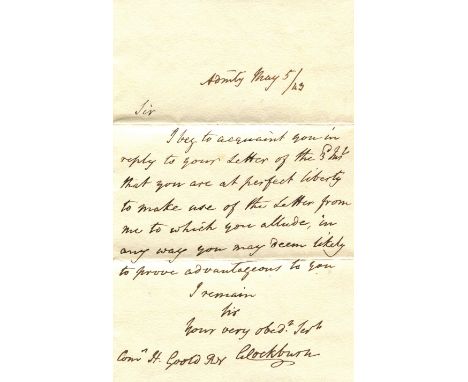 Admty May 5/43
Sir
I beg to acquaint you in
reply to your Letter of the
that you are at perfect liberty
to make use of the Letter from
me to which you allude, in
any way you may deem likely
to prove advantageous to you
I remain
Sir
Your very obedt Servt
Comr H. Goold RN GCockburn